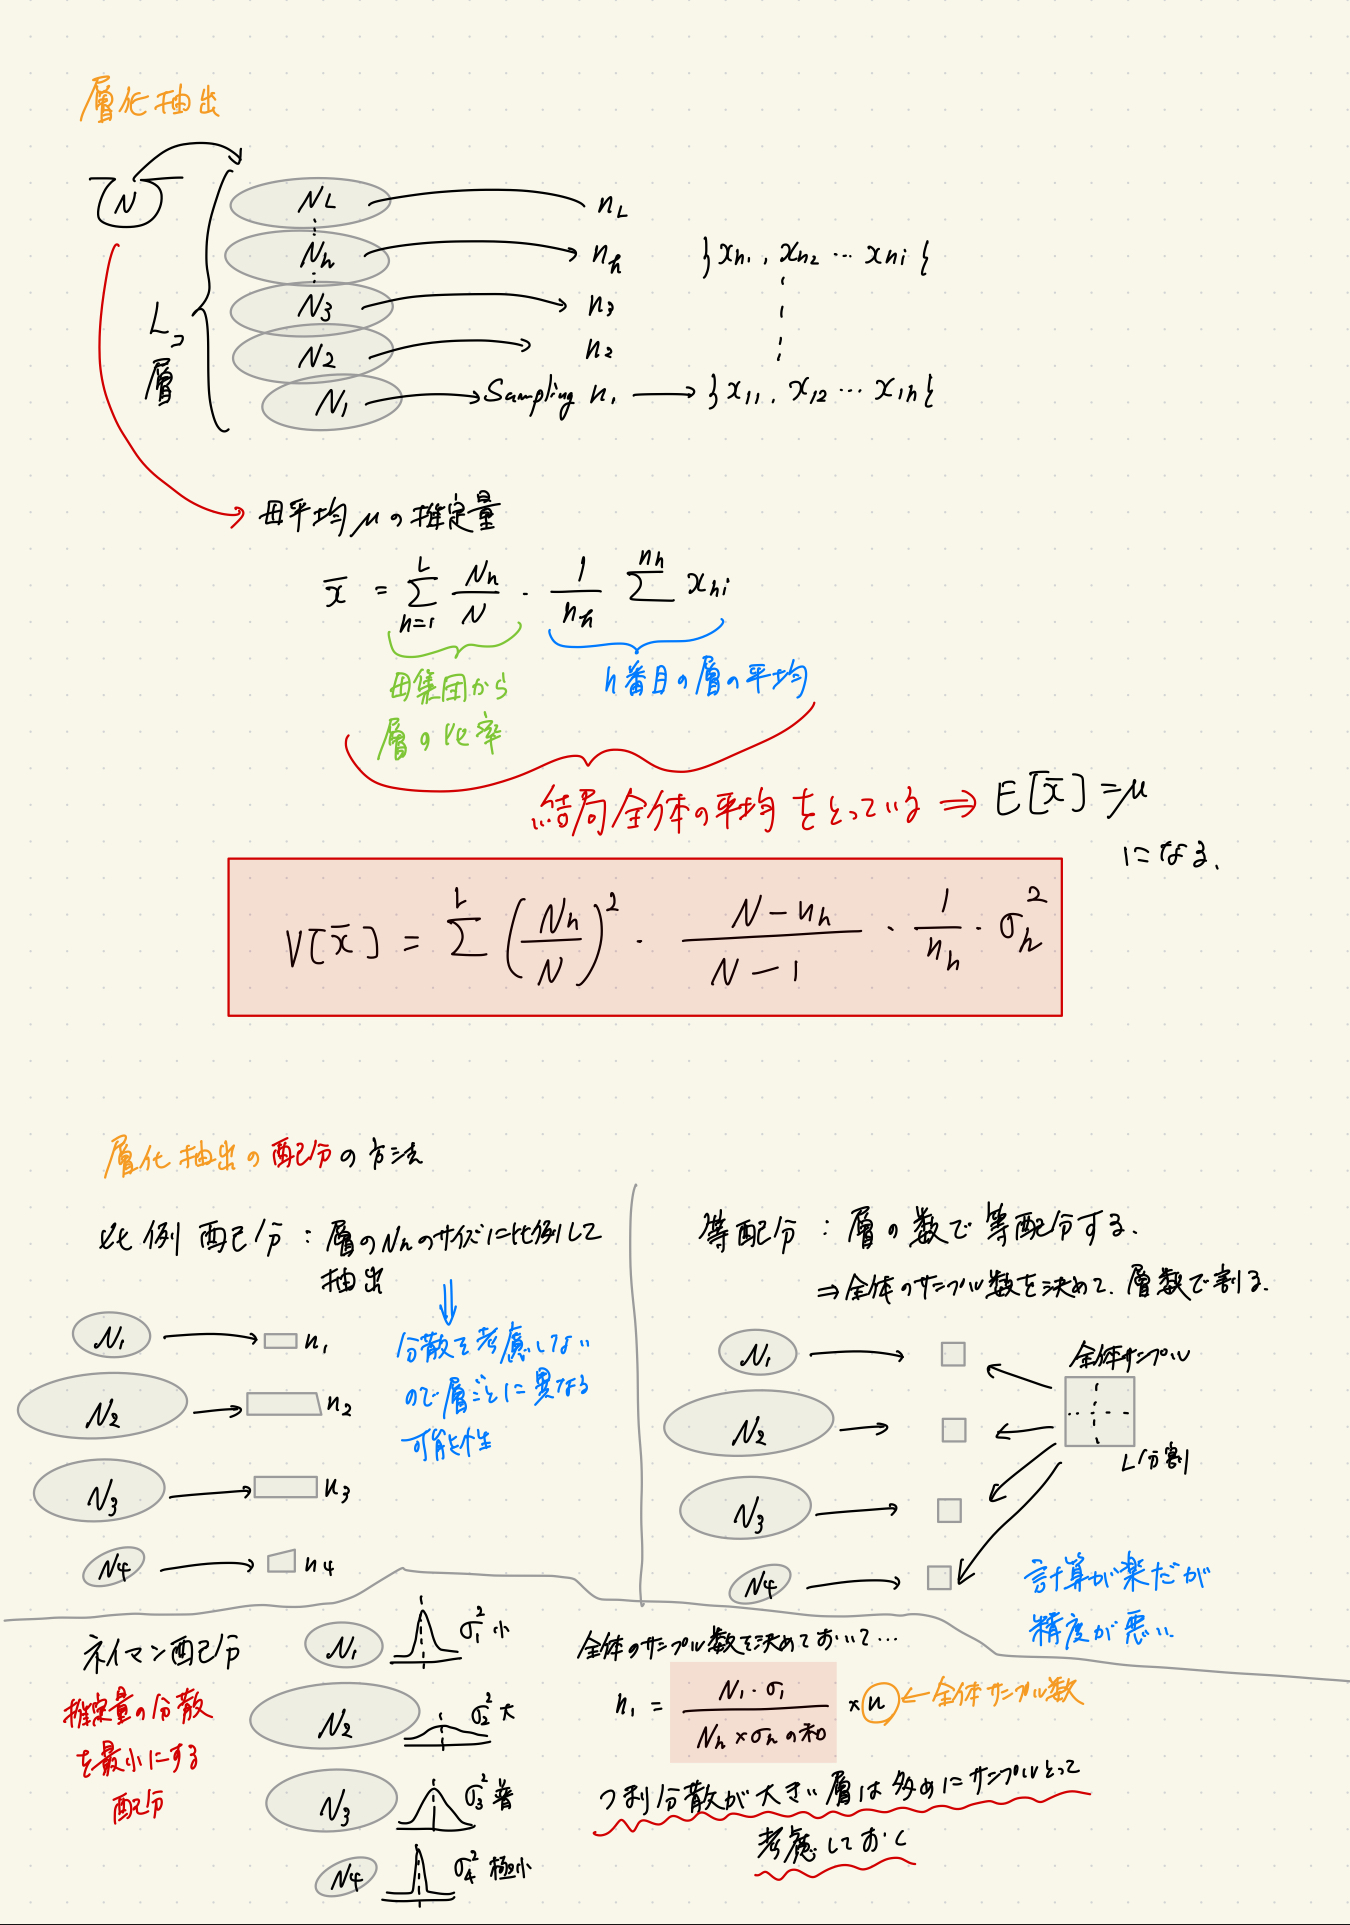 層化抽出
N
L
層
N_L n_L
N_h n_h {x_{h1}, x_{h2} … x_{hi}}
N_3 n_3
N_2 n_2
N_1 Sampling n_1 {x_{11}, x_{12} … x_{1n}}
母平均μの推定量
x̄ = Σ_{h=1}^{L} N_h/N · 1/n_h Σ^{n_h} x_{hi}
母集団から
層の比率
h番目の層の平均
結局全体の平均をとっている ⇒ E[x̄] = μ
になる.
V[x̄] = Σ^{L} (N_h/N)^2 · (N-n_h)/(N-1) · 1/n_h · σ_h^2
層化抽出の配分の方法
比例配分:層のN_hのサイズに比例して
抽出
分散を考慮しない
ので層ごとに異なる
可能性
N_1 n_1
N_2 n_2
N_3 n_3
N_4 n_4
等配分:層の数で等配分する.
⇒全体のサンプル数を決めて、層数で割る.
N_1
N_2
N_3
N_4
全体サンプル
L分割
計算が楽だが
精度が悪い
ネイマン配分
推定量の分散
を最小にする
配分
N_1 σ_1^2 小
N_2 σ_2^2 大
N_3 σ_3^2 普
N_4 σ_4^2 極小
全体のサンプル数を決めておいて…
n_1 = (N_1・σ_1)/(N_h×σ_hの和) × n ←全体サンプル数
つまり分散が大きい層は多めにサンプルとって
考慮しておく